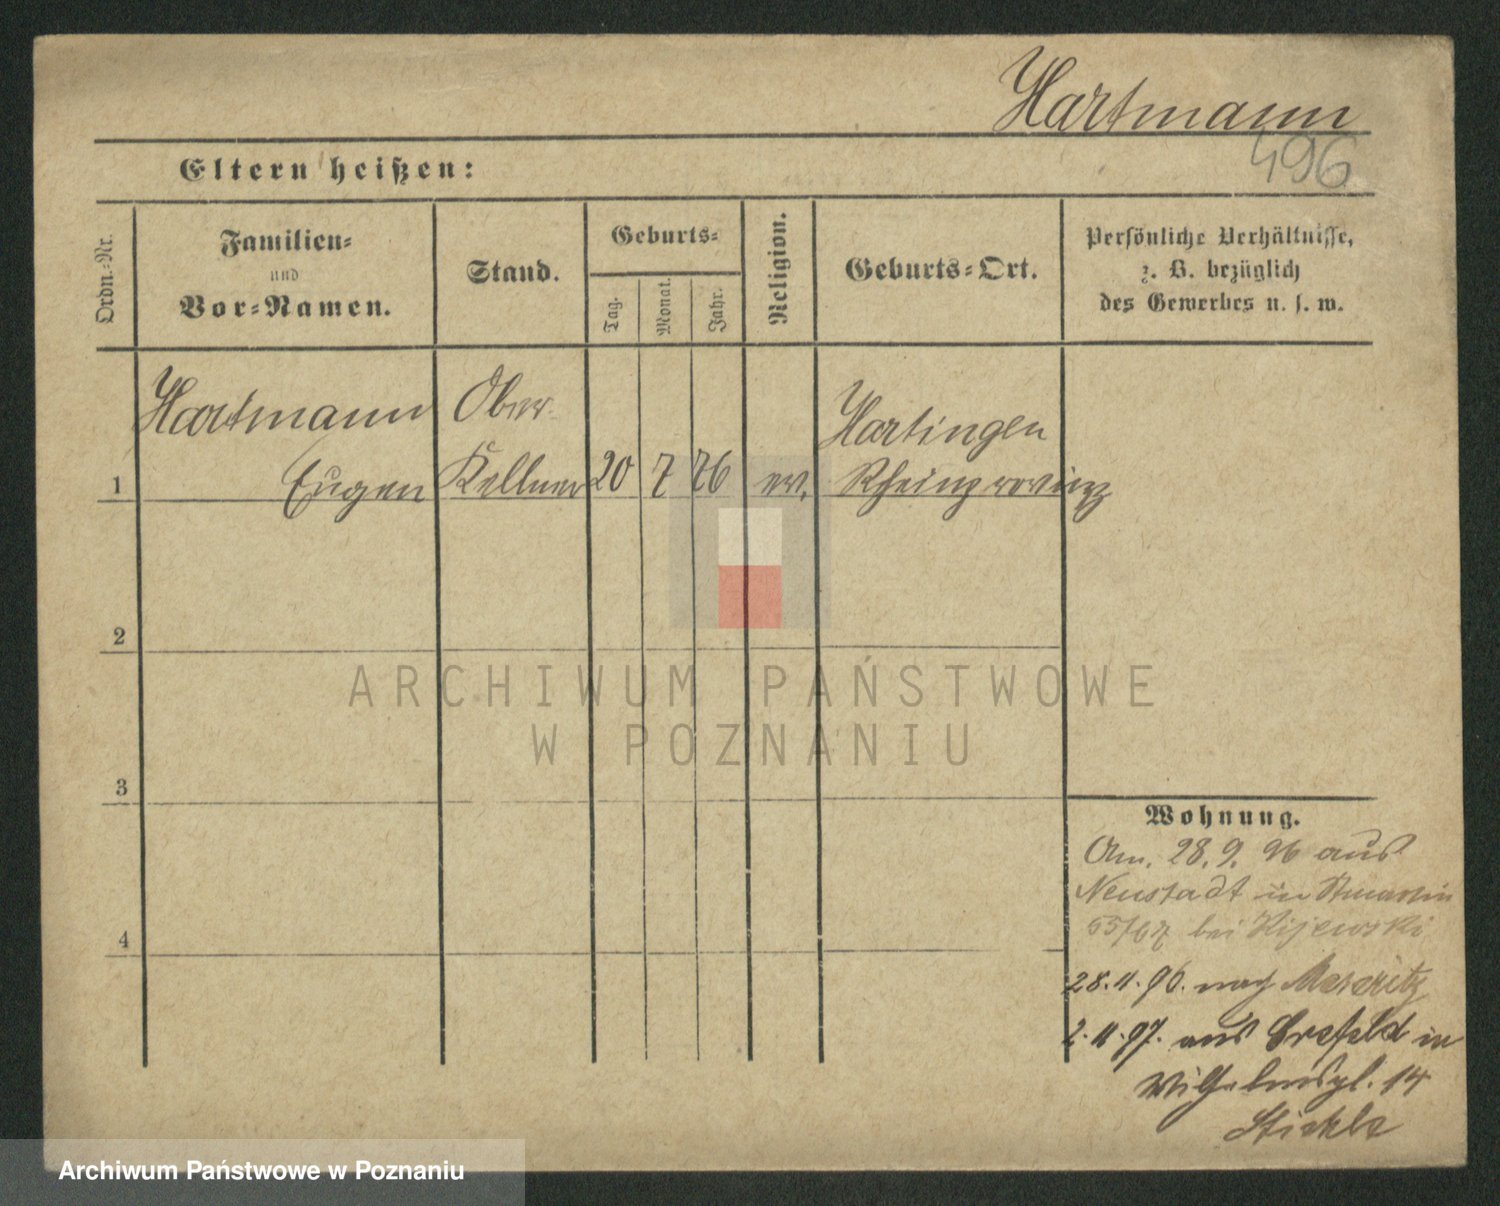 Hartmann
496
Eltern heißen:
Ordn.-Nr.
Familien-
und
Vor-Namen.
Stand.
Geburts-
Tag.
Monat.
Jahr.
Religion.
Geburts-Ort.
Persönliche Verhältnisse,
z. B. bezüglich
des Gewerbes u. s. w.
Hartmann
Eugen
Ober-
Kellner
20 7 76 ev.
Hartingen
Rheinprovinz
1
2
3
4
ARCHIWUM PAŃSTWOWE
W POZNANIU
Wohnung.
Am. 28.9.96 aus
Neustadt in Stmartin
65/67 bei Kijewski
28.11.96. nach Meseritz
2.11.97. aus Crefeld in
Wilhelmspl. 14
Archiwum Państwowe w Poznaniu